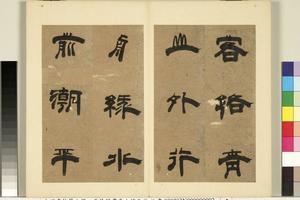 客路青
山外行
舟綠水
前潮平